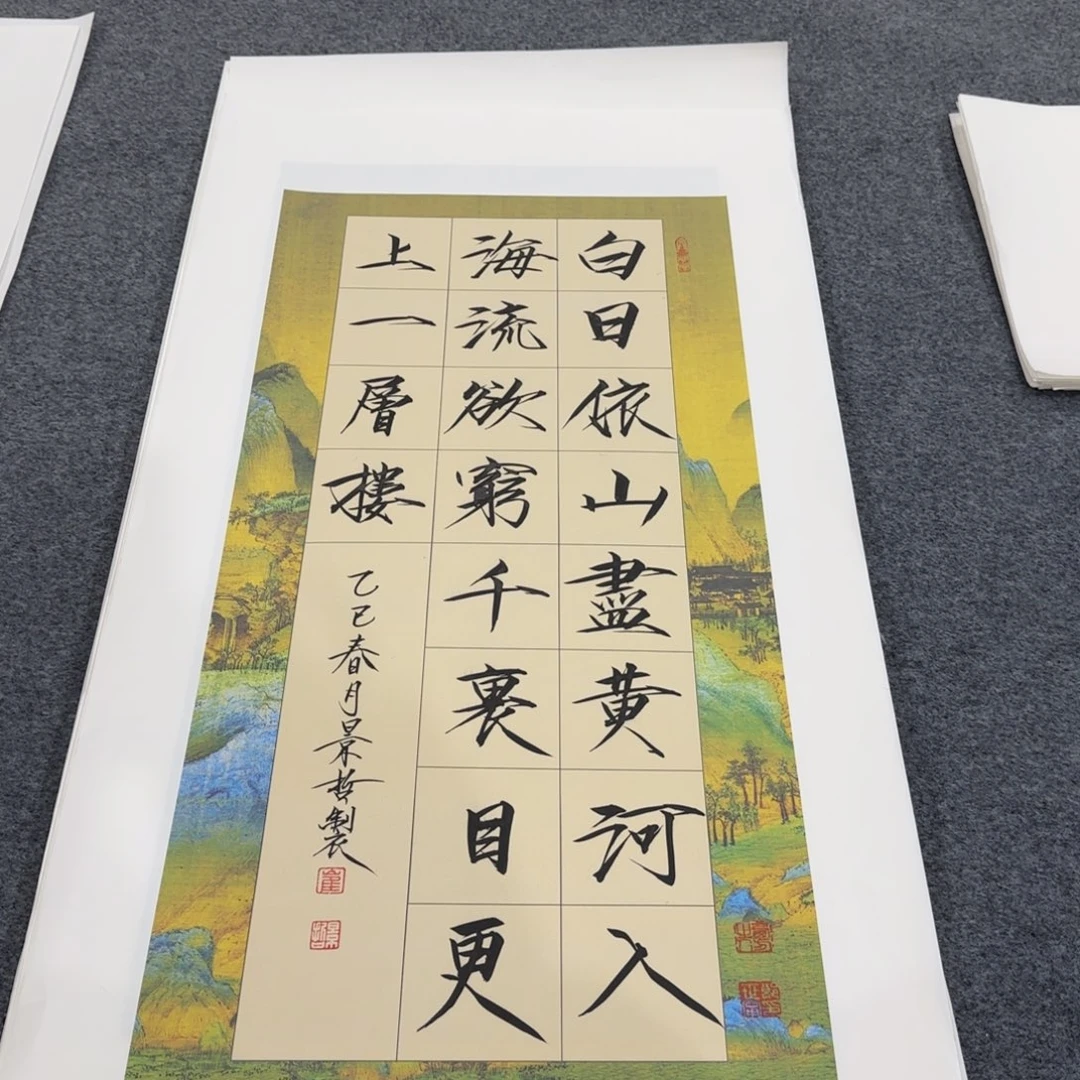 白日依山盡黄河入
海流欲窮千裏目更
上一層樓
乙巳春月景哲製
崔
景哲